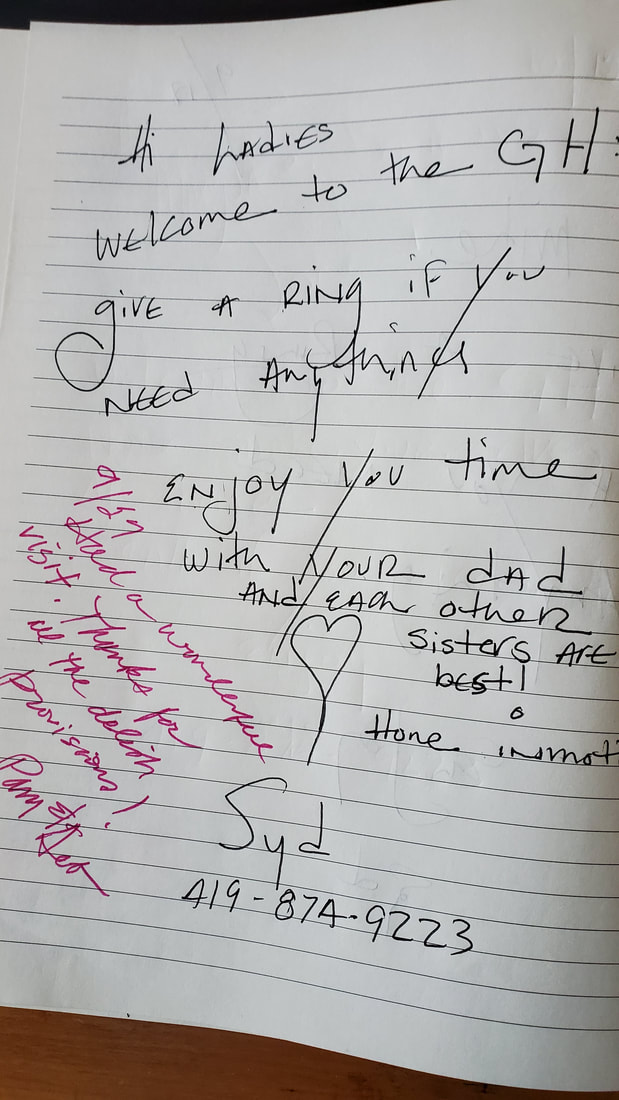 Hi LADIES
WELCOME to the GH
give A RiNg iF You
NEED Anythings
ENjoy YoU time
With YOUR dAD
AND EACH otheR
sisters ARE
best!
Syd
419-874-9223
9/27
Had a wonderful
visit. Thanks for
all the delish
provisions!
Pam &